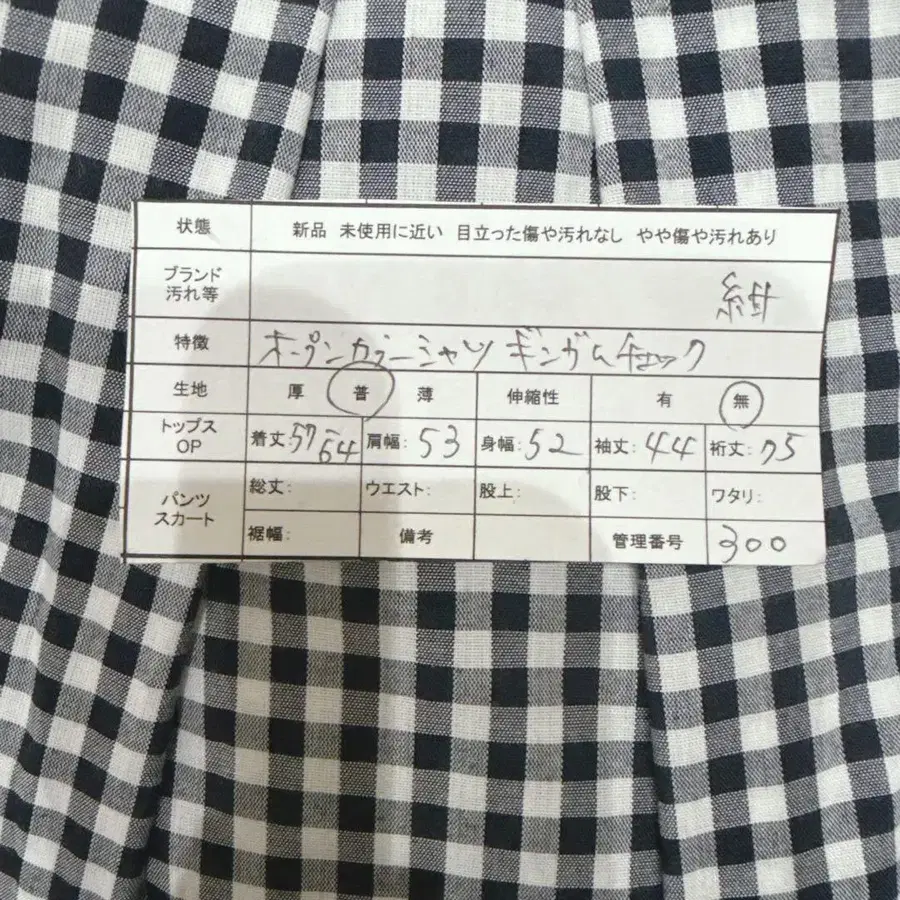 状態 新品 未使用に近い 目立った傷や汚れなし やや傷や汚れあり
ブランド
汚れ等 紺
特徴 オープンカラーシャツ ギンガムチェック
生地 厚 普 薄 伸縮性 有 無
トップス
OP 着丈:57-64 肩幅:53 身幅:52 袖丈:44 裄丈:75
パンツ
スカート 総丈: ウエスト: 股上: 股下: ワタリ:
裾幅: 備考 管理番号 300